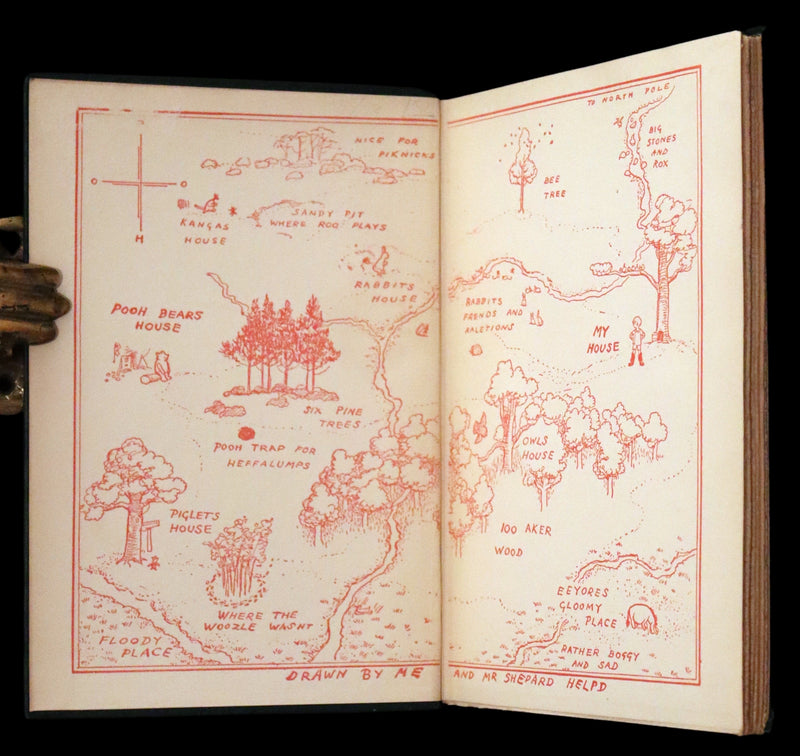 TO NORTH POLE
NICE FOR
PIKNICKS
BIG
STONES
AND
ROX
O O
H
BEE
TREE
KANGAS
HOUSE
SANDY PIT
WHERE ROO PLAYS
RABBITS
HOUSE
RABBITS
FRENDS AND
RALETIONS
POOH BEARS
HOUSE
MY
HOUSE
SIX PINE
TREES
POOH TRAP FOR
HEFFALUMPS
OWLS
HOUSE
PIGLETS
HOUSE
100 AKER
WOOD
WHERE THE
WOOZLE WASNT
EEYORES
GLOOMY
PLACE
FLOODY
PLACE
RATHER BOGGY
AND SAD
DRAWN BY ME AND MR SHEPARD HELPD